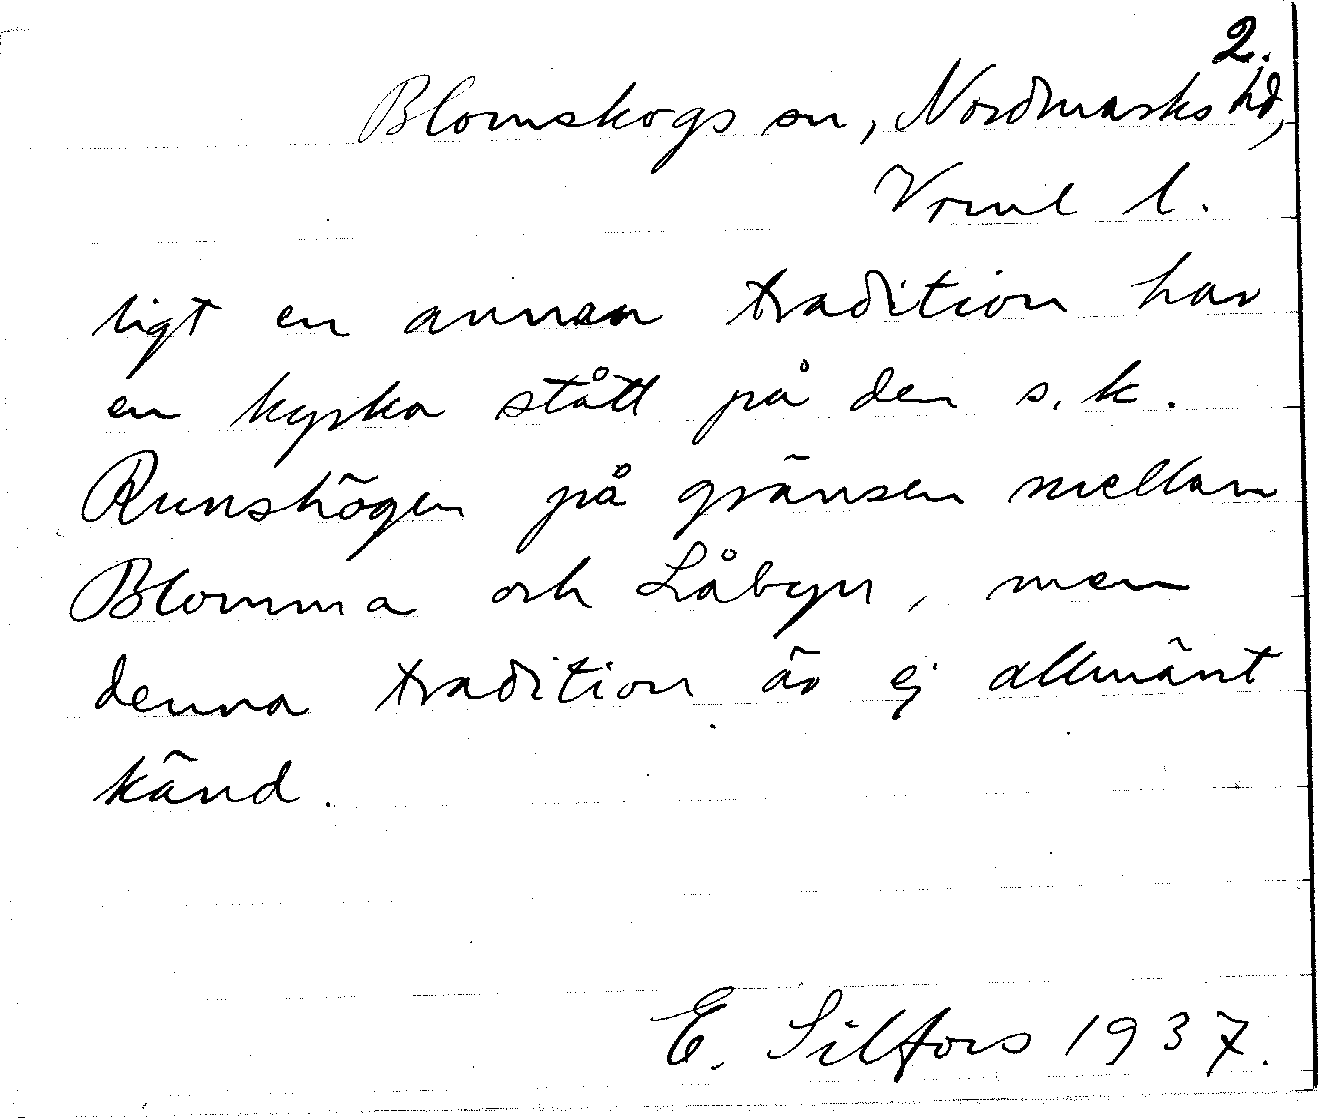 2.
Blomskogs sn, Nordmarks hd,
Vrml l.
ligt en annan tradition har
en kyrka stått på den s.k.
Runshögen på gränsen mellan
Blomma och Låbyn, men
denna tradition är ej allmänt
känd.
E. Silfors 1937.